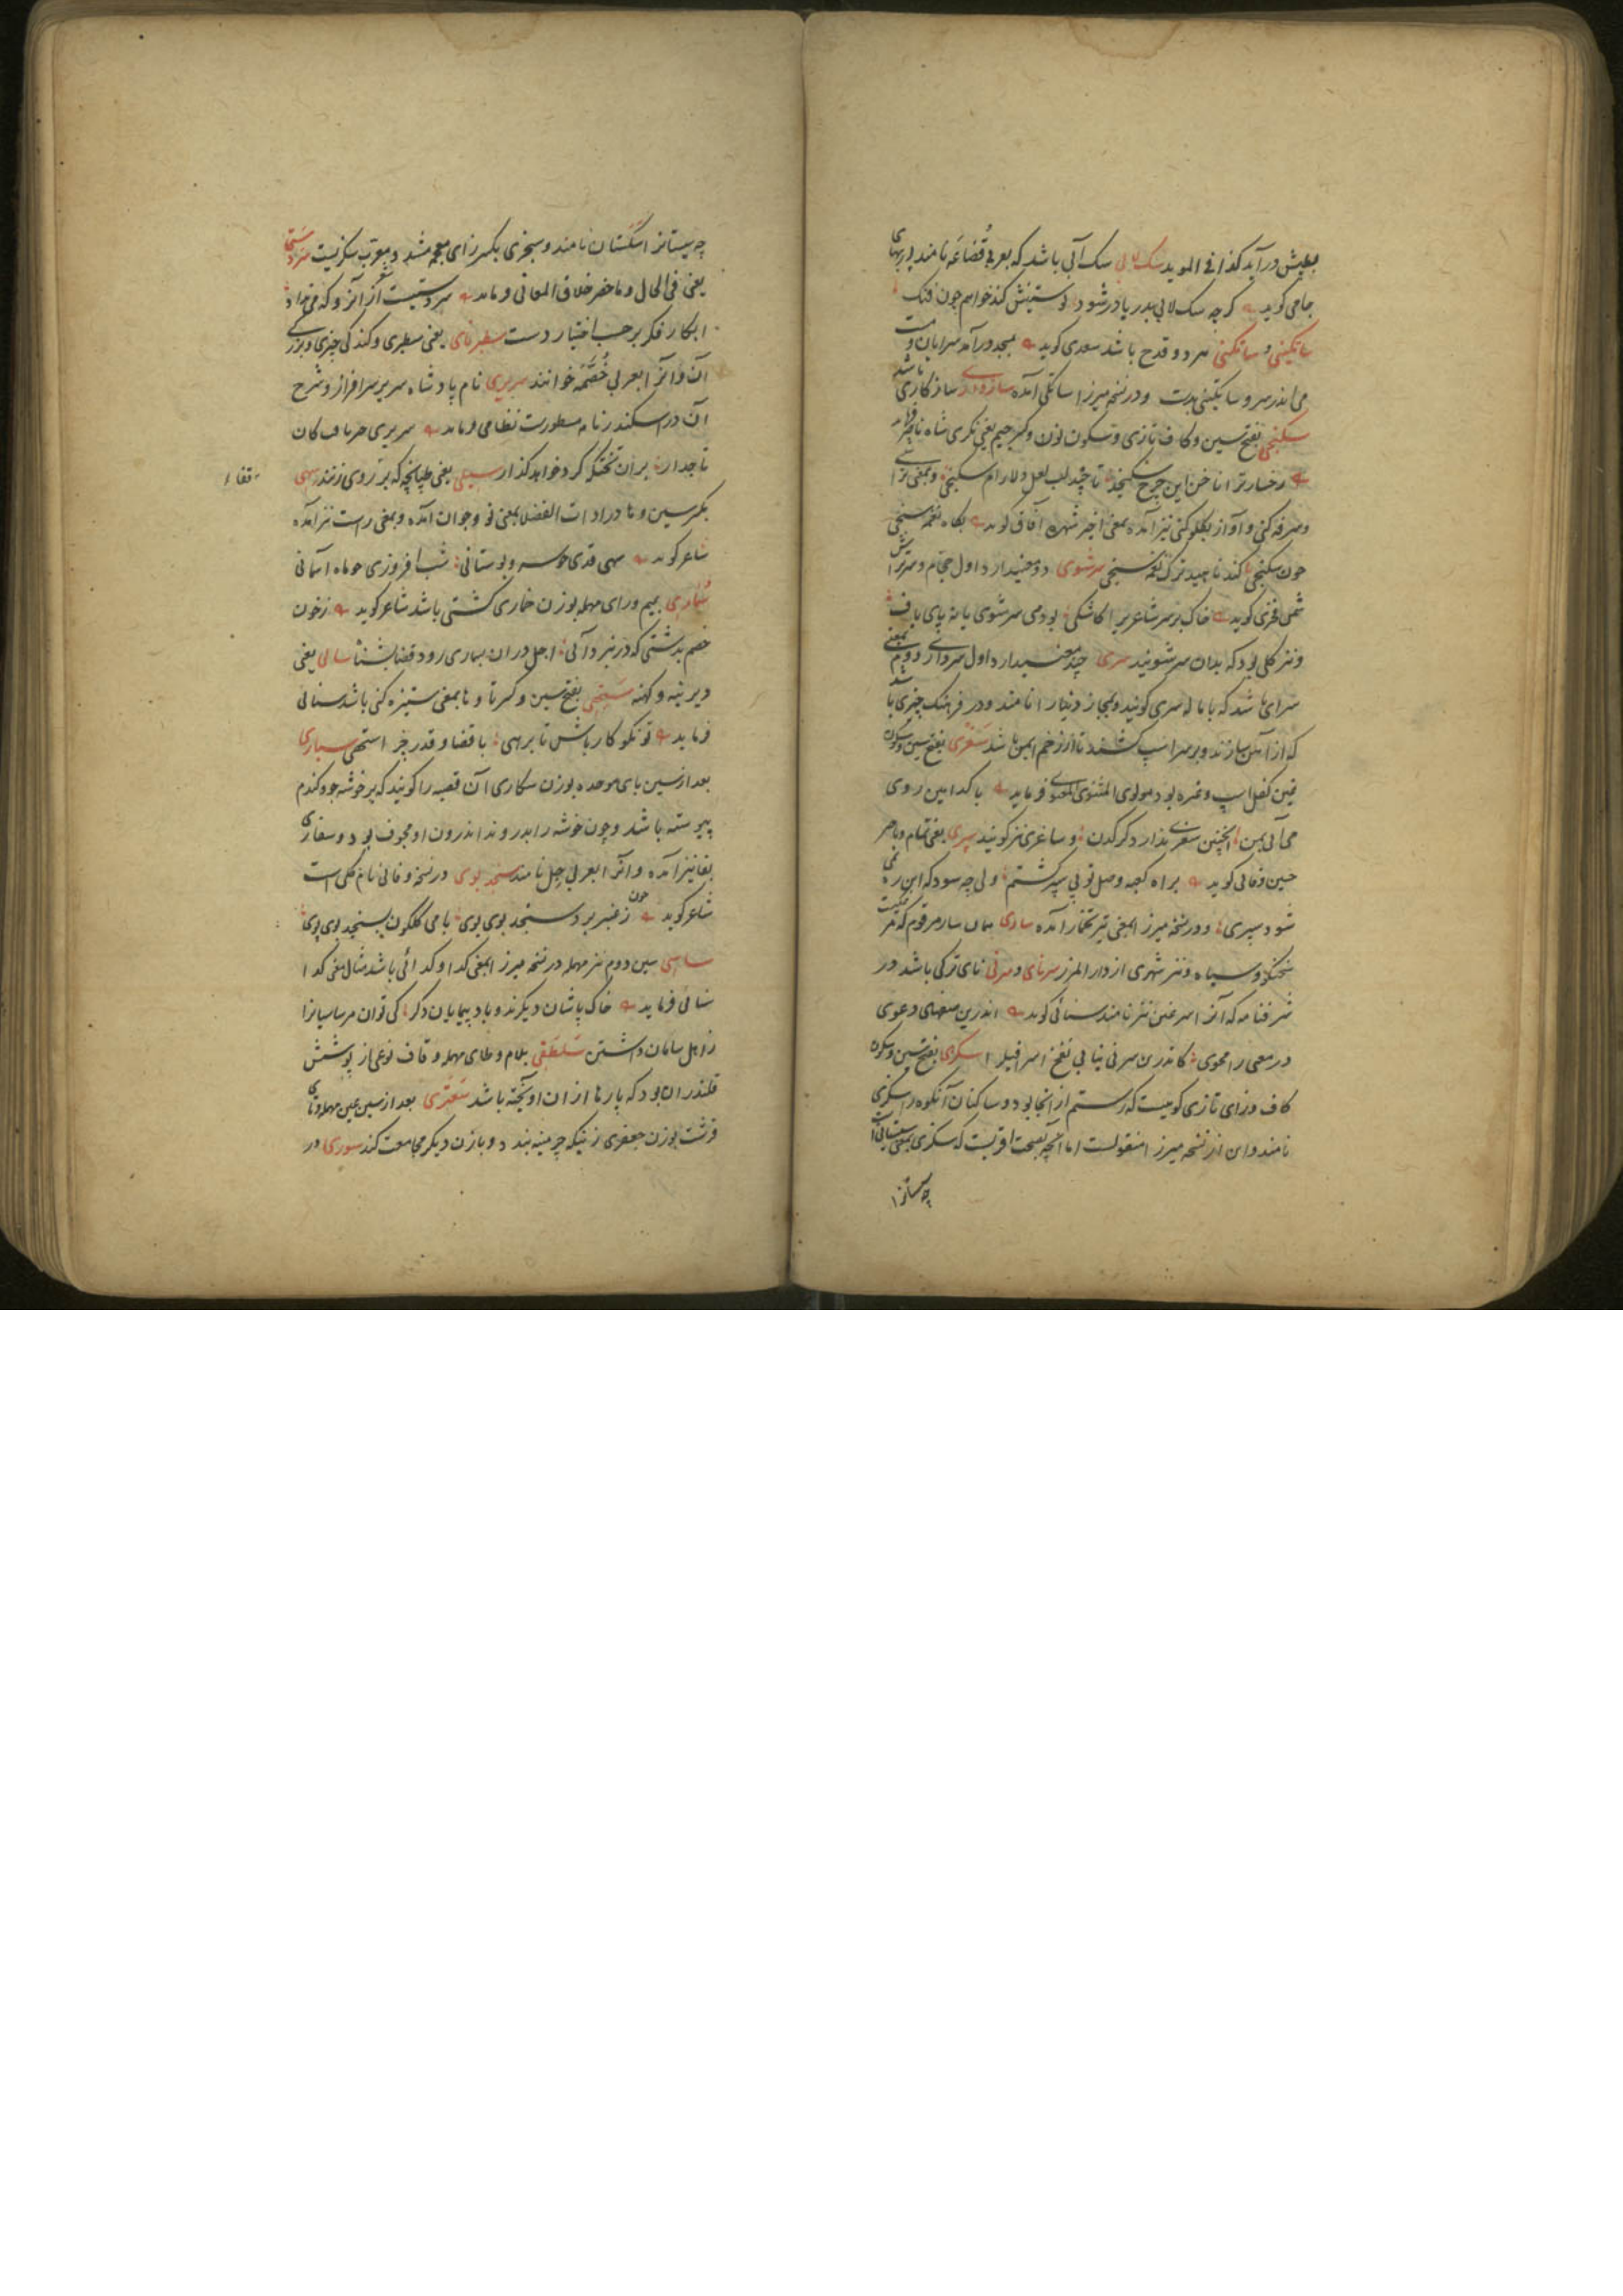 بعیش درآید کذا فی الموید سک لابی سک آبی باشد که بعربی قُضاعَه نامند
جامی کوید کرچه سک لابی بدریا در شود پوستینش کند خواهم چون فنک
ساتکینی و ساتکنی مرد و قدح باشد سعدی کوید بمسجد درآمد سرایان و مست
می اندر سر و ساتکینی بدست و در نسخه میرزا ساتکی آمده سازواری سازکاری باشد
سکنجی بفتح سین و کاف تازی و سکون نون و کسر جیم یعنی
رخسار ترا ناخن این چرخ سکنجد تا چند لب لعل دلارام سکنجی و بمعنی
و سرفه کنی و آواز بکلو کنی نیز آمده بمعنی اخیر شهره آفاق کوید بکاه نغمه سنجی
چون سکنجی کند ناهید ترک نغمه سنجی سرشوی دو معنی دارد اول حجام و سرتراش
شمس فخری کوید خاک بر سر شاعر برا کاشکی بودمی سرشوی یا نه پای باف
و نیز کلی بود که بدان سر شویند سری چند معنی دارد اول سرداری دویم بمعنی
سرای باشد که باماله سری کویند و بمجاز دنیا را نامند و در فرهنک چیزی باشد
که از آهن سازند و بر سر اسپ کشند تا از زخم ایمن باشد سغری بفتح سین و سکون
غین کفل اسپ و غیره بود مولوی المثنوی المعنوی فرماید با کدامین روی
می آئی بمن اینچنین سغری ندارد کرکدن و ساغری نیز کویند سپری یعنی تمام و باخر
حسین وفائی کوید براه کعبه وصل تو پی سپر کشتم ولی چه سود که این ره نمی
شود سپری و در نسخه میرزا بمعنی تیر تخمار آمده ساری همان سار مرقوم که
سخنکو و سیاه و نیز شهری از دار المرز سرنای و سرنی نای ترکی باشد در
شرفنامه که آنرا سرغین نیز نامند سنائی کوید اندرین منتهای دعوی
در معنی را محوی کاندرین سرنی نیابی نفخ اسرافیل را سکزی بفتح سین و سکون
کاف و زای تازی کوهیست که رستم از انجا بود و ساکنان آنکوه را سکزی
نامند و این از نسخه میرزا منقولست اما آنچه بصحت اقربست که سکزی بمعنی سیستانی است
چه سیستانرا
چه سیستانرا سکستان نامند و سجزی بکسر زای معجمه مشد و معرب سکزیست سردستی
یعنی فی الحال و ماحضر خلاق المعانی فرماید سردستیست اکر آنرو که می نهاد
ابکار فکر بر حسب اختیار دست سطبرنای یعنی سطبری و کندکی چیزی و بزرکی
آن و آنرا بعربی ضُخمَه خوانند سریری نام پادشاه سریر سرافراز و شرح
آن در اسکندرنامه مسطورست نظامی فرماید سریری خبر یافت کان
تاجدار بر ان تختکه کرد خواهد کذار سیلی یعنی طپانچه که بر روی زنند سهی
قفا
بکسر سین و ها در ادات الفضلا بمعنی نو و جوان آمده و بمعنی راست نیز آمده
شاعر کوید سهی قدی چو سرو بوستانی شب افروزی چو ماه آسمانی
سُماری بمیم و رای مهمله بوزن خماری کشتی باشد شاعر کوید ز خون
خصم بدشتی که در نبرد آئی اجل در ان بسماری رود قضا بشنا سالی یعنی
دیرینه و کهنه ستهی بفتح سین و کسر تا و ها بمعنی ستیزه کنی باشد سنائی
فرماید تو نکو کار باش تا برهی با قضا و قدر چرا ستهی سباری
بعد از سین بای موحده بوزن سکاری آن قصبه را کویند که بر خوشه جو و کندم
پیوسته باشد و چون خوشه را بدروند اندرون او مجوف بود و سفاری
بفا نیز آمده و آنرا بعربی جل نامند سنجد بوی در نسخه وفائی نام کلی است
شاعر کوید چون ز عنبر برد سنجد بوی بوی با می کلکون بسنجد بوی بوی
ساسی سین دوم نیز مهمله در نسخه میرزا بمعنی کدا و کدائی باشد مثال معنی کدا
سنائی فرماید خاک پاشان دیکرند و باد پیمایان دکر کی توان مر ساسیانرا
ز اهل ساسان داشتن سَلطَقی بلام و طای مهمله و قاف نوعی از پوشش
قلندران بود که پارها از ان آویخته باشد سَعتری بعد از سین عین مهمله و تای
قرشت بوزن جعفری زنیکه چرمینه بندد و با زن دیکر مجامعت کند سوری در